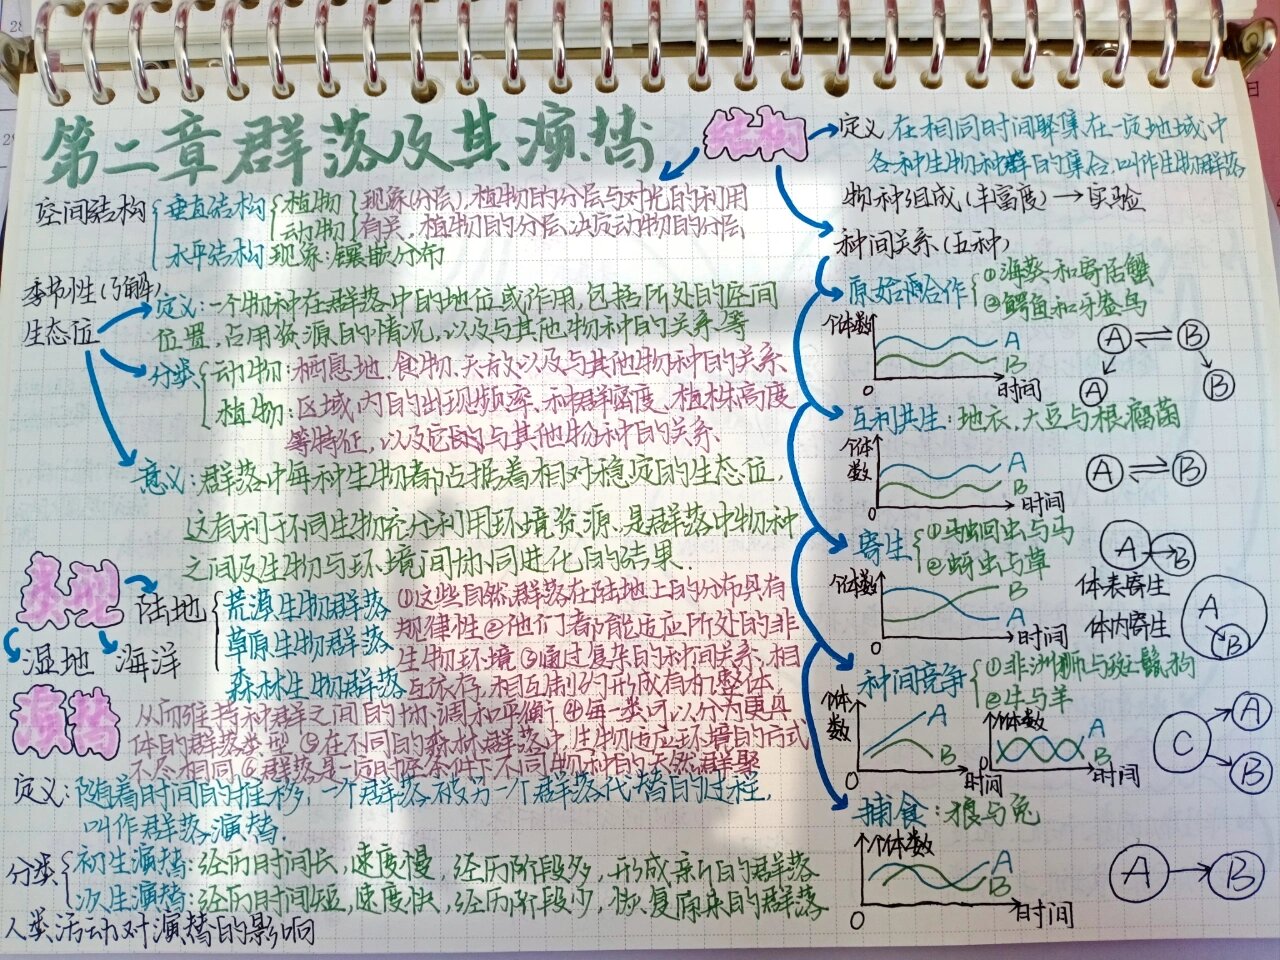 第二章群落及其演替
结构
定义 在相同时间聚集在一定地域中
各种生物种群的集合,叫作生物群落
物种组成(丰富度)→实验
种间关系(五种)
空间结构
垂直结构
植物
动物
现象(分层),植物的分层与对光的利用
有关,植物的分层决定动物的分层
水平结构 现象:镶嵌分布
季节性(了解)
生态位
定义:一个物种在群落中的地位或作用,包括所处的空间
位置,占用资源的情况,以及与其他物种的关系等
分类
动物:栖息地、食物、天敌以及与其他物种的关系
植物:区域内的出现频率、种群密度、植株高度
等特征,以及它的与其他物种的关系
意义:群落中每种生物都占据着相对稳定的生态位,
这有利于不同生物充分利用环境资源,是群落中物种
之间及生物与环境间协同进化的结果.
类型
陆地
湿地 海洋
荒漠生物群落
草原生物群落
森林生物群落
①这些自然群落在陆地上的分布具有
规律性②他们都能适应所处的非
生物环境③通过复杂的种间关系,相
互依存,相互制约形成有机整体,
从而维持种群之间的协调和平衡④每一类可以分为更具
体的群落类型⑤在不同的森林群落中,生物适应环境的方式
不尽相同⑥群落是一定时空条件下不同物种的天然群聚
演替
定义:随着时间的推移,一个群落被另一个群落代替的过程,
叫作群落演替.
分类
初生演替:经历时间长,速度慢,经历阶段多,形成新的群落
次生演替:经历时间短,速度快,经历阶段少,恢复原来的群落
人类活动对演替的影响
原始合作
①海葵和寄居蟹
②鳄鱼和牙签鸟
个体数
A
B
0
时间
A B
A B
互利共生:地衣,大豆与根瘤菌
个体
数
A
B
0
时间
A B
寄生
①马蛔虫与马
②蚜虫与草
个体数
B
A
0
时间
A B
体表寄生
体内寄生
A
B
种间竞争
①非洲狮与斑鬣狗
②牛与羊
个体
数
A
B
0
时间
个体数
A
B
0
时间
C
A
B
捕食:狼与兔
个体数
A
B
0
时间
A B